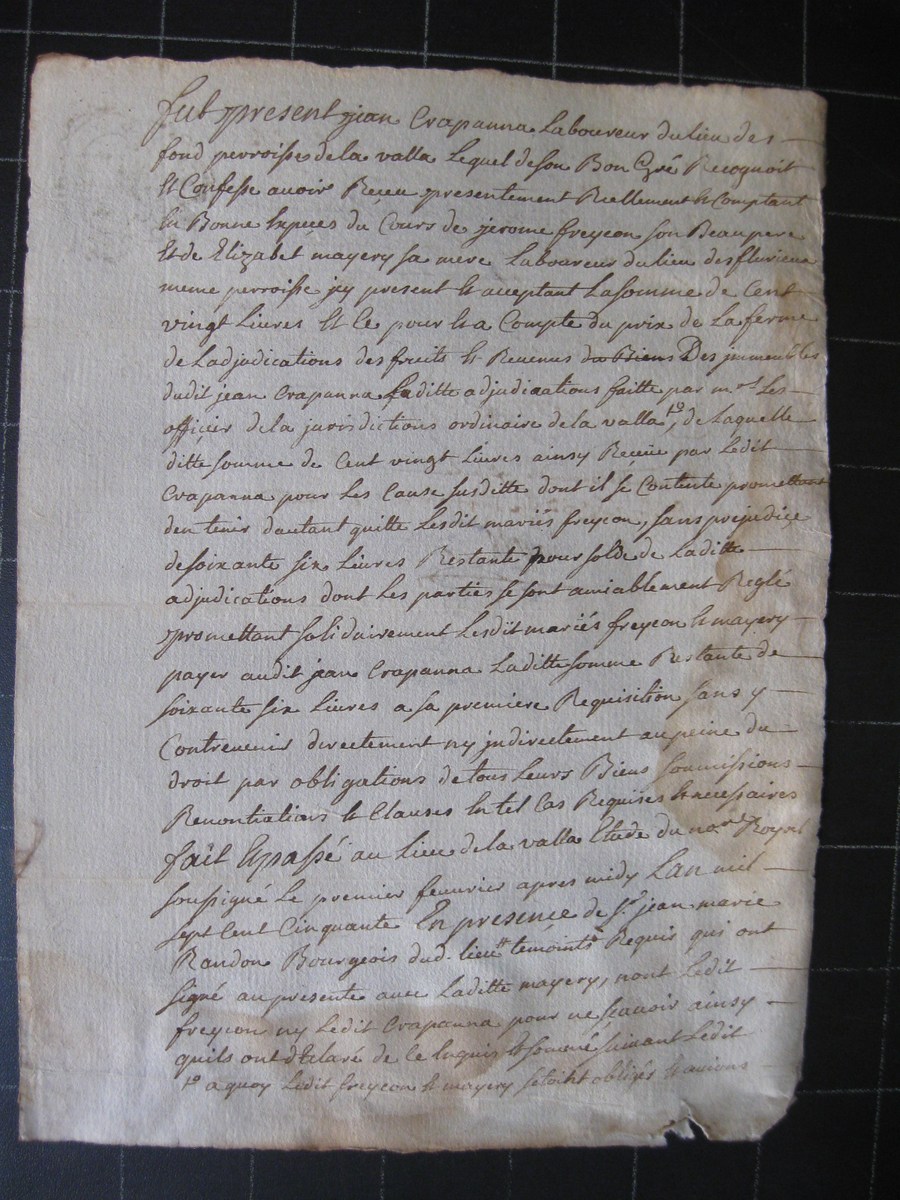 fut present jean Crapanna Laboureur du lieu des
fond perroisse de la valla Lequel de son Bon Gré Recognoit
Et Confesse avoir Receu presentement Reellement & Comptant
En Bonne Especes du Cours de jerome freycon son Beaupere
Et de Elizabet mayery sa mere Laboureur du lieu des flurieux
meme perroisse jcy present & acceptant La somme de Cent
vingt Livres Et Ce pour & a Compte du prix de La ferme
de Ladjudications des fruits & Revenus du Biens Des jmmeubles
dudit jean Crapanna Laditte adjudications faitte par mrs Les
officier de la jurisdictions ordinaire de la valla, de Laquelle
ditte somme de Cent vingt Livres ainsy Receüe par Ledit
Crapanna pour Les Cause susditte dont il se Contente promettant
den tenir dautant quitte Lesdit mariés freycon, sans prejudice
de soixante six Livres Restante pour solde de Laditte
adjudications dont Les parties se sont amiablement Reglé
promettant solidairement Lesdit mariés freycon & mayery
payer audit jean Crapanna Laditte somme Restante de
soixante six Livres a sa premiere Requisition sans y
Contrevenir directement ny jndirectement au peine du
droit par obligations de tous Leurs Biens soumissions
Renontiations & Clauses En tel Cas Requises & necessaires
fait & passé au Lieu de la valla Etude du nore Royal
soussigné Le premier fevurier apres midy Lan mil
sept Cent Cinquante En presence de sr jean marie
Randon Bourgeois dud. lieu temoints Requis qui ont
signé au presente avec Laditte mayery, nont Ledit
freycon ny Ledit Crapanna pour ne sçavoir ainsy
quils ont déClaré de Ce Enquis & sommé suivant Ledit
a quoy Ledit freycon & mayery obligés